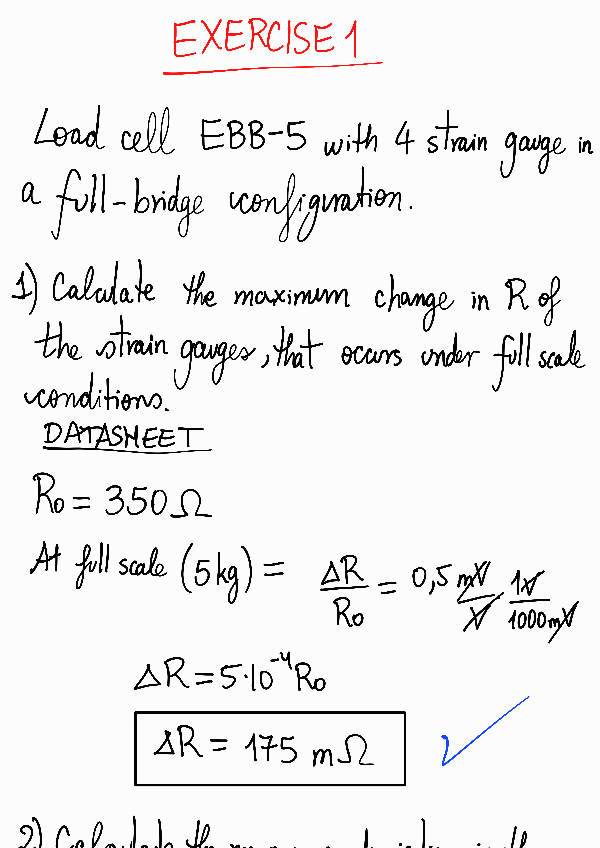 EXERCISE 1
Load cell EBB-5 with 4 strain gauge in
a full-bridge configuration.
1) Calculate the maximum change in R of
the strain gauges, that occurs under full scale
conditions.
DATASHEET
R₀ = 350 Ω
At full scale (5kg) = ΔR/R₀ = 0,5 mV/V · 1V/1000mV
ΔR = 5·10⁻⁴ R₀
ΔR = 175 mΩ
2) Calculate the